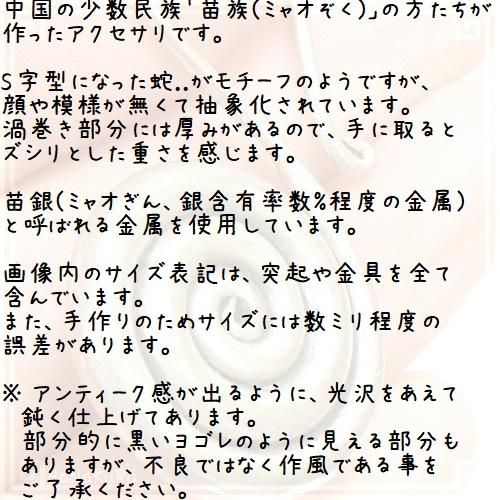 中国の少数民族「苗族(ミャオぞく)」の方たちが
作ったアクセサリです。
S字型になった蛇..がモチーフのようですが、
顔や模様が無くて抽象化されています。
渦巻き部分には厚みがあるので、手に取ると
ズシリとした重さを感じます。
苗銀(ミャオぎん、銀含有率数%程度の金属)
と呼ばれる金属を使用しています。
画像内のサイズ表記は、突起や金具を全て
含んでいます。
また、手作りのためサイズには数ミリ程度の
誤差があります。
※ アンティーク感が出るように、光沢をあえて
鈍く仕上げてあります。
部分的に黒いヨゴレのように見える部分も
ありますが、不良ではなく作風である事を
ご了承ください。